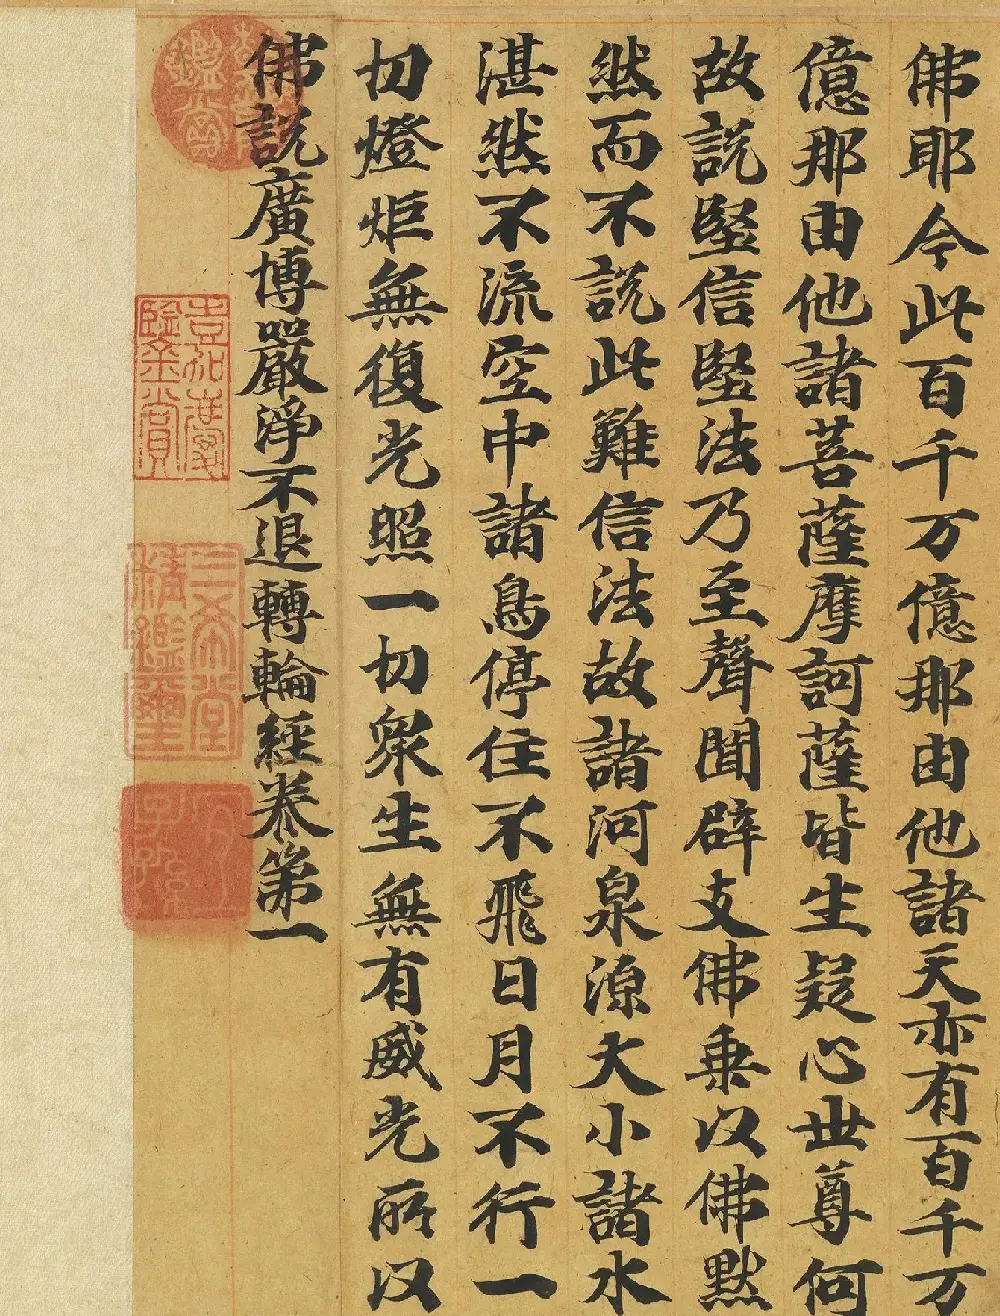 佛耶今此百千万億那由他諸天亦有百千万
億那由他諸菩薩摩訶薩皆生疑心世尊何
故說堅信堅法乃至聲聞辟支佛乗以佛黙
然而不說此難信法故諸河泉源大小諸水
湛然不流空中諸鳥停住不飛日月不行一
切燈炬無復光照一切衆生無有威光所以
佛說廣博嚴淨不退轉輪經卷第一
嘉慶鑒賞
三希堂精鑑璽
宜子孫